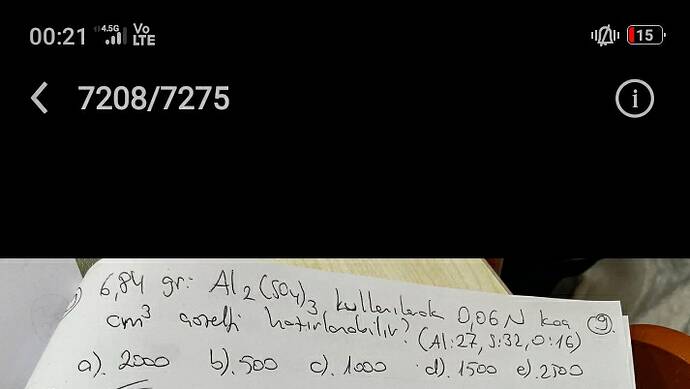 00:21 4.5G Vo LTE 15
7208/7275
6,84 gr. Al2(SO4)3 kullanılarak 0,06 N kaç
cm³ çözelti hazırlanabilir? (Al:27, S:32, O:16)
9
a). 2000 b). 500 c). 1000 d). 1500 e). 2500